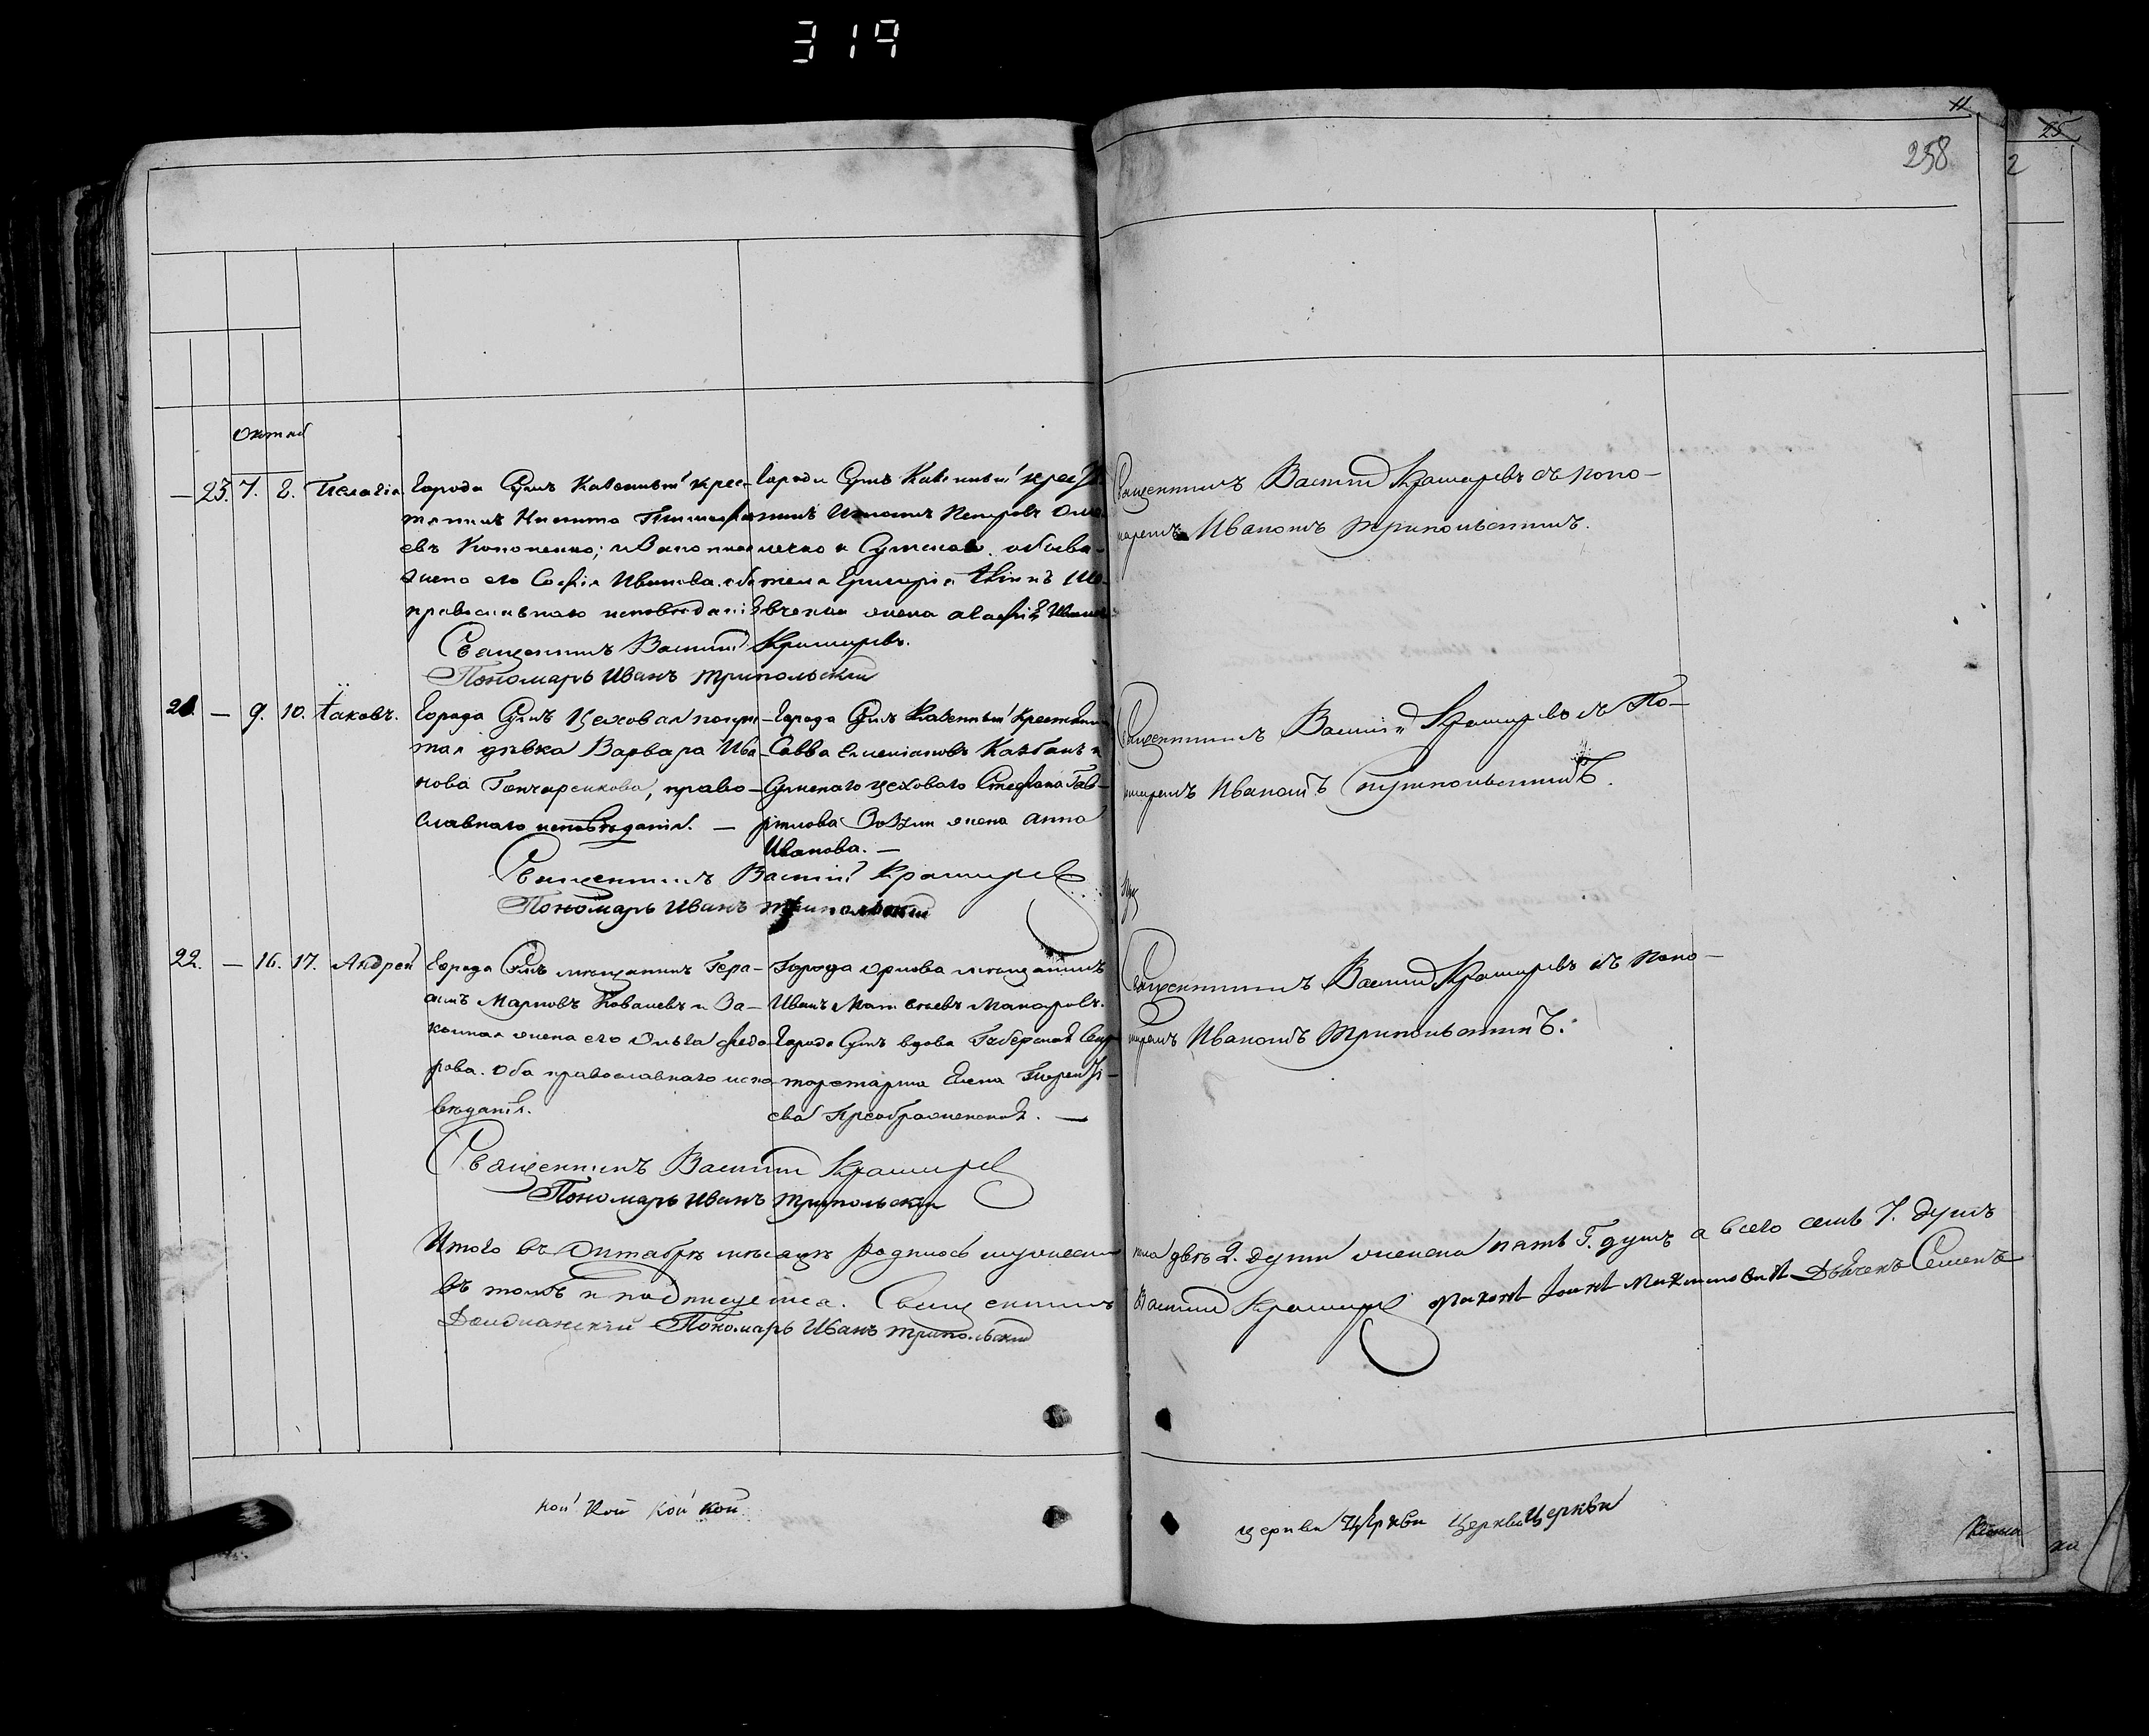 319
11
25
258
2
Октяб
— 23. 7. 8. Пелагія
Города Сумъ Казенный крес-
тянинъ Никита Тимофе
евъ Кононенко; и Законная
жена его Софія Иванова. оба
православнаго исповѣданія
Города Сумъ Казенный крестя
нинъ Петровъ
и Сумскаго
жена Иванова
Священникъ Василій Крамаревъ.
Пономарь Иванъ Трипольскій
Священникъ Василій Крамаревъ съ поно-
маремъ Иваномъ Трипольскимъ.
21. — 9. 10. Іаковъ.
Города Сумъ Цеховая
дѣвка Варвара Ива
нова Гончаренкова, право-
славнаго исповѣданія. —
Города Сумъ Казенный Крестянин
Савва Емеліановъ Кабанъ и
Сумскаго цеховаго Стефана Гав-
рилова жена Анна
Иванова. —
Священникъ Василій Крамаревъ
Пономарь Иванъ Трипольскій
Священникъ Василій Крамаревъ съ По-
номаремъ Иваномъ Трипольскимъ.
22. — 16. 17. Андрей
Города Сумъ мѣщанинъ Гера-
симъ Марковъ Ковалевъ и За-
конная жена его Ольга Федо-
рова. Оба православнаго испо-
вѣданія.
Города Орлова мѣщанинъ
Иванъ Матвѣевъ Макаровъ.
Города Сумъ вдова Губернская Секре
тарша Елена Теренті-
ева Преображенская. —
Священникъ Василій Крамаревъ
Пономарь Иванъ Трипольскій
Священникъ Василій Крамаревъ съ Поно-
маремъ Иваномъ Трипольскимъ.
Итого въ Октябрѣ мѣсяцѣ родилось мужеска
пола двѣ 2. души женска пять 5. душъ а всего семь 7. душъ
въ томъ и подписуемся. Священникъ
Василій Крамаревъ Діаконъ Іоаннъ Максимовичъ Дьячекъ Семенъ
Пономарь Иванъ Трипольскій
кой кой кой кой
церкви Церкви Церкви Церкви